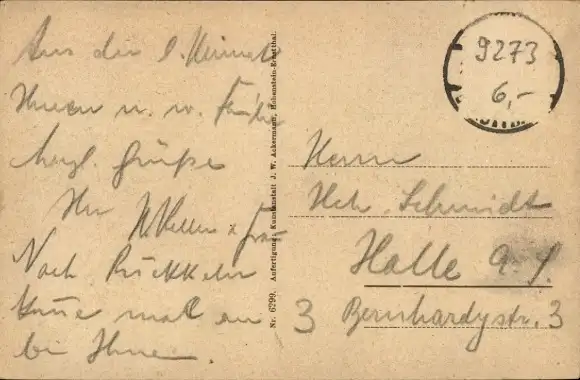 Aus der l. Heimat
Ihnen u. w. Familie
herzl. Grüße
Ihr W. Keller & Frau
Nach Rückkehr
komme mal an
bei Ihnen.
Nr. 6290. Anfertigung: Kunstanstalt J. W. Ackermann, Hohenstein-Ernstthal.
9273
6,-
Herrn
Schmidt
Halle a. S.
3 Bernhardystr. 3